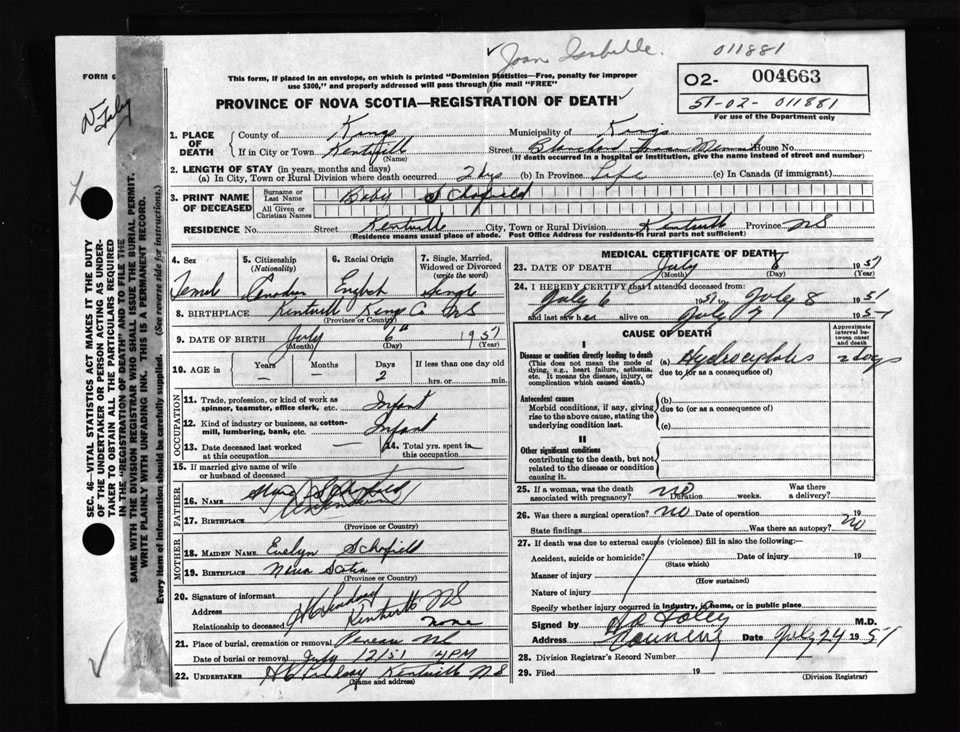 Joan Isabelle. 011881
FORM
N Foley
This form, if placed in an envelope, on which is printed "Dominion Statistics—Free, penalty for improper
use $300," and properly addressed will pass through the mail "FREE"
02- 004663
51-02- 011881
For use of the Department only
PROVINCE OF NOVA SCOTIA—REGISTRATION OF DEATH
1. PLACE OF DEATH
County of Kings Municipality of Kings
If in City or Town Kentville (Name) Street Blanchard House No.
(If death occurred in a hospital or institution, give the name instead of street and number)
2. LENGTH OF STAY (in years, months and days)
(a) In City, Town or Rural Division where death occurred 2 dys (b) In Province Life (c) In Canada (if immigrant)
3. PRINT NAME OF DECEASED
Surname or Last Name Baby Schofield
All Given or Christian Names
RESIDENCE No. Street Kentville City, Town or Rural Division Kentville Province NS
(Residence means usual place of abode. Post Office Address for residents in rural parts not sufficient)
4. Sex 5. Citizenship (Nationality) 6. Racial Origin 7. Single, Married, Widowed or Divorced (write the word)
Female Canadian English Single
8. BIRTHPLACE Kentville Kings Co NS
(Province or Country)
9. DATE OF BIRTH July 6th 1951
(Month) (Day) (Year)
10. AGE in Years Months Days If less than one day
— 2 hrs. or min.
OCCUPATION
11. Trade, profession, or kind of work as spinner, teamster, office clerk, etc. Infant
12. Kind of industry or business, as cotton-mill, lumbering, bank, etc. Infant
13. Date deceased last worked at this occupation — 14. Total yrs. spent in this occupation
15. If married give name of wife or husband of deceased
FATHER
16. Name Schofield
17. Birthplace
(Province or Country)
MOTHER
18. MAIDEN NAME Evelyn Schofield
19. BIRTHPLACE Nova Scotia
(Province or Country)
20. Signature of informant H C Lindsay
Address Kentville NS
Relationship to deceased none
21. Place of burial, cremation or removal NS
Date of burial or removal July 12/51 4 PM
22. UNDERTAKER H C Lindsay Kentville NS
(Name and address)
MEDICAL CERTIFICATE OF DEATH
23. DATE OF DEATH July 8 1951
(Month) (Day) (Year)
24. I HEREBY CERTIFY that I attended deceased from:
July 6 1951 to July 8 1951
and last saw her alive on July 7 1951
CAUSE OF DEATH
Approximate interval between onset and death
I
Disease or condition directly leading to death (a) Hydrocephalus 2 days
(This does not mean the mode of dying, e.g., heart failure, asthenia, etc. It means the disease, injury, or complication which caused death.)
due to (or as a consequence of)
Antecedent causes
Morbid conditions, if any, giving rise to the above cause, stating the underlying condition last.
(b)
due to (or as a consequence of)
(c)
II
Other significant conditions
contributing to the death, but not related to the disease or condition causing it.
25. If a woman, was the death associated with pregnancy? no Duration weeks. Was there a delivery?
26. Was there a surgical operation? no Date of operation 19
State findings Was there an autopsy? no
27. If death was due to external causes (violence) fill in also the following:—
Accident, suicide or homicide? Date of injury 19
(State which)
Manner of injury
(How sustained)
Nature of injury
Specify whether injury occurred in industry, in home, or in public place
Signed by Foley M.D.
Address Canning Date July 24 1951
28. Division Registrar's Record Number
29. Filed 19
(Division Registrar)
SEC. 46—VITAL STATISTICS ACT MAKES IT THE DUTY
OF THE UNDERTAKER OR PERSON ACTING AS UNDER-
TAKER TO OBTAIN ALL THE PARTICULARS REQUIRED
IN THE "REGISTRATION OF DEATH" AND TO FILE THE
SAME WITH THE DIVISION REGISTRAR WHO SHALL ISSUE THE BURIAL PERMIT.
WRITE PLAINLY WITH UNFADING INK. THIS IS A PERMANENT RECORD.
Every item of information should be carefully supplied. (See reverse side for instructions.)